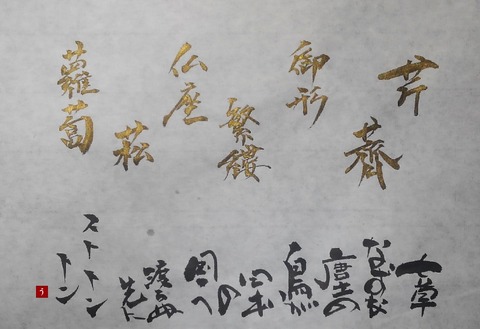 芹
薺
御形
繁縷
仏座
菘
蘿蔔
七草
なずな
唐土の
鳥が
日本の
国へ
渡らぬ
先に
ストトン
トン
う